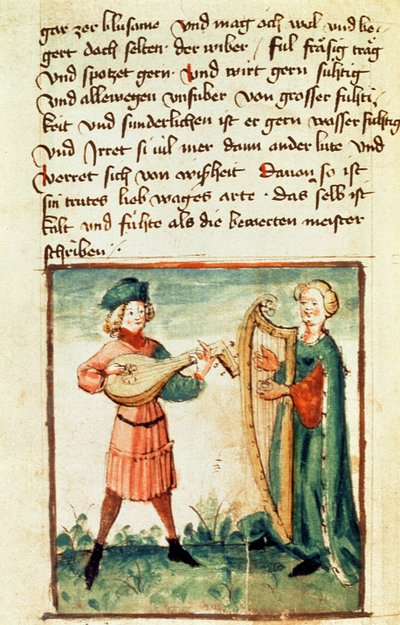 gar zerblusame und mag och wol und be-
gert doch selten der wiber / ful fräsig träg
und spotzet gern · und wirt gern sühtig
und allewegen unsuber von grosser fühti-
keit und sunderlichen ist er gern wasser sühtig
und Irret si vil mer dann ander lute und
verret sich von wißheit Davon so ist
sin trutes lieb wages arte · das selb ist
kalt und fühte als die bewerten meister
schriben /·